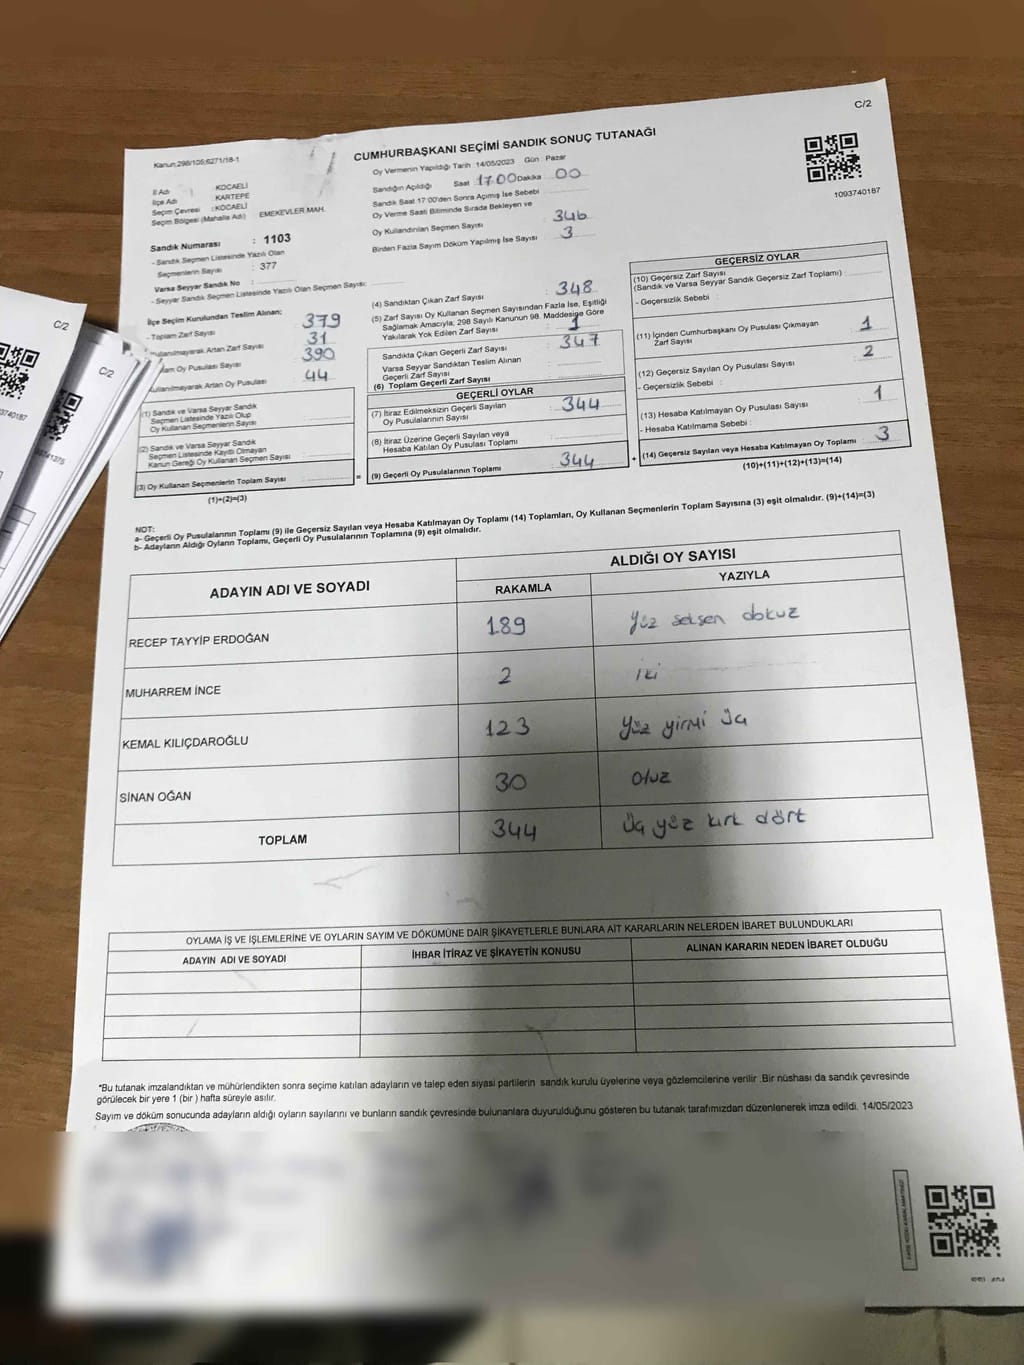 C/2
Kanun;298/105;6271/18-1
CUMHURBAŞKANI SEÇİMİ SANDIK SONUÇ TUTANAĞI
1093740187
İl Adı : KOCAELİ
İlçe Adı : KARTEPE
Seçim Çevresi : KOCAELİ
Seçim Bölgesi (Mahalle Adı) : EMEKEVLER MAH.
Sandık Numarası : 1103
- Sandık Seçmen Listesinde Yazılı Olan
Seçmenlerin Sayısı : 377
Varsa Seyyar Sandık No :
- Seyyar Sandık Seçmen Listesinde Yazılı Olan Seçmen Sayısı:
Oy Vermenin Yapıldığı Tarih 14/05/2023 Gün Pazar
Sandığın Açıldığı Saat 17.00 Dakika 00
Sandık Saat 17:00'den Sonra Açılmış İse Sebebi
Oy Verme Saati Bitiminde Sırada Bekleyen ve
Oy Kullandırılan Seçmen Sayısı 346
Birden Fazla Sayım Döküm Yapılmış İse Sayısı 3
İlçe Seçim Kurulundan Teslim Alınan:
- Toplam Zarf Sayısı : 379
Kullanılmayarak Artan Zarf Sayısı 31
Oy Pusulası Sayısı 390
Kullanılmayarak Artan Oy Pusulası : 44
(1) Sandık ve Varsa Seyyar Sandık
Seçmen Listesinde Yazılı Olup
Oy Kullanan Seçmenlerin Sayısı
(2) Sandık ve Varsa Seyyar Sandık
Seçmen Listesinde Kayıtlı Olmayan
Kanun Gereği Oy Kullanan Seçmen Sayısı
(3) Oy Kullanan Seçmenlerin Toplam Sayısı
(1)+(2)=(3)
(4) Sandıktan Çıkan Zarf Sayısı : 348
(5) Zarf Sayısı Oy Kullanan Seçmen Sayısından Fazla İse, Eşitliği
Sağlamak Amacıyla, 298 Sayılı Kanunun 98. Maddesine Göre
Yakılarak Yok Edilen Zarf Sayısı : 1
Sandıkta Çıkan Geçerli Zarf Sayısı : 347
Varsa Seyyar Sandıktan Teslim Alınan
Geçerli Zarf Sayısı
(6) Toplam Geçerli Zarf Sayısı
GEÇERLİ OYLAR
(7) İtiraz Edilmeksizin Geçerli Sayılan
Oy Pusulalarının Sayısı : 344
(8) İtiraz Üzerine Geçerli Sayılan veya
Hesaba Katılan Oy Pusulası Toplamı
(9) Geçerli Oy Pusulalarının Toplamı : 344
GEÇERSİZ OYLAR
(10) Geçersiz Zarf Sayısı
(Sandık ve Varsa Seyyar Sandık Geçersiz Zarf Toplamı) :
- Geçersizlik Sebebi :
(11) İçinden Cumhurbaşkanı Oy Pusulası Çıkmayan
Zarf Sayısı : 1
(12) Geçersiz Sayılan Oy Pusulası Sayısı : 2
- Geçersizlik Sebebi :
(13) Hesaba Katılmayan Oy Pusulası Sayısı : 1
- Hesaba Katılmama Sebebi :
(14) Geçersiz Sayılan veya Hesaba Katılmayan Oy Toplamı : 3
(10)+(11)+(12)+(13)=(14)
NOT:
a- Geçerli Oy Pusulalarının Toplamı (9) ile Geçersiz Sayılan veya Hesaba Katılmayan Oy Toplamı (14) Toplamları, Oy Kullanan Seçmenlerin Toplam Sayısına (3) eşit olmalıdır. (9)+(14)=(3)
b- Adayların Aldığı Oyların Toplamı, Geçerli Oy Pusulalarının Toplamına (9) eşit olmalıdır.
ADAYIN ADI VE SOYADI ALDIĞI OY SAYISI
RAKAMLA YAZIYLA
RECEP TAYYİP ERDOĞAN 189 yüz seksen dokuz
MUHARREM İNCE 2 iki
KEMAL KILIÇDAROĞLU 123 yüz yirmi üç
SİNAN OĞAN 30 otuz
TOPLAM 344 üç yüz kırk dört
OYLAMA İŞ VE İŞLEMLERİNE VE OYLARIN SAYIM VE DÖKÜMÜNE DAİR ŞİKAYETLERLE BUNLARA AİT KARARLARIN NELERDEN İBARET BULUNDUKLARI
ADAYIN ADI VE SOYADI İHBAR İTİRAZ VE ŞİKAYETİN KONUSU ALINAN KARARIN NEDEN İBARET OLDUĞU
*Bu tutanak imzalandıktan ve mühürlendikten sonra seçime katılan adayların ve talep eden siyasi partilerin sandık kurulu üyelerine veya gözlemcilerine verilir .Bir nüshası da sandık çevresinde
görülecek bir yere 1 (bir ) hafta süreyle asılır.
Sayım ve döküm sonucunda adayların aldığı oyların sayılarını ve bunların sandık çevresinde bulunanlara duyurulduğunu gösteren bu tutanak tarafımızdan düzenlenerek imza edildi. 14/05/2023
C/2
C/2